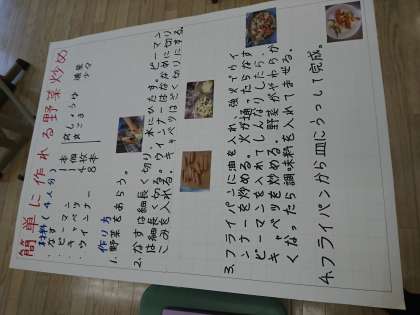 簡単に作れる野菜炒め
材料(4人分)
・なす 1本
・ピーマン 1個
・キャベツ 4枚
・ウインナー 8本
焼
しょうゆ 適量
こしょう 少々
作り方
1. 野菜をあらう。
2. なすは細長く切り、水にひたす。ピーマン
は細長く切る。ウインナーはななめに切り
こみを入れる。キャベツはざく切りにする。
3. フライパンに油を入れ、強火でウイ
ンナーを炒める。火が通ったらなす
ピーマンを入れてしんなりしたら、
キャベツを炒める。野菜がやわらか
くなったら調味料を入れてまぜる。
4. フライパンから皿にうつして完成。